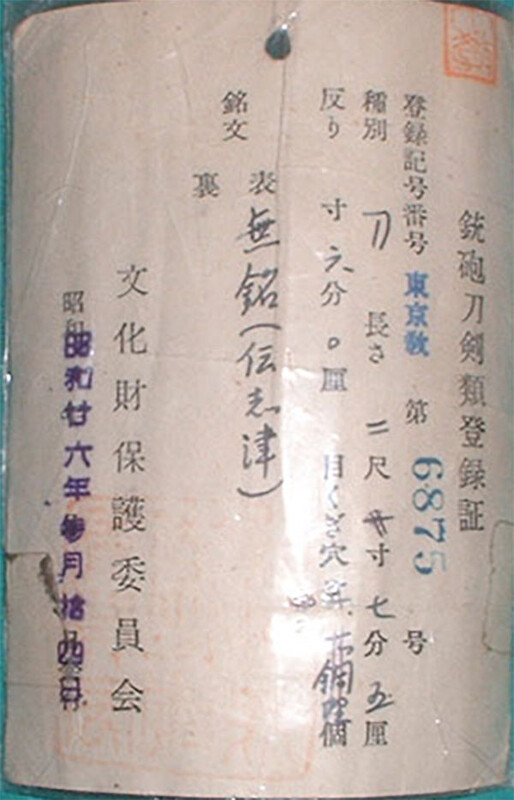 銃砲刀剣類登録証
登録記号番号 東京教 第 6875 号
種別 刀 長さ 二尺 寸七分五厘
反り 寸六分0厘 目くぎ穴 個
銘文
表 無銘(伝志津)
裏
文化財保護委員会
昭和廿六年参月拾四日